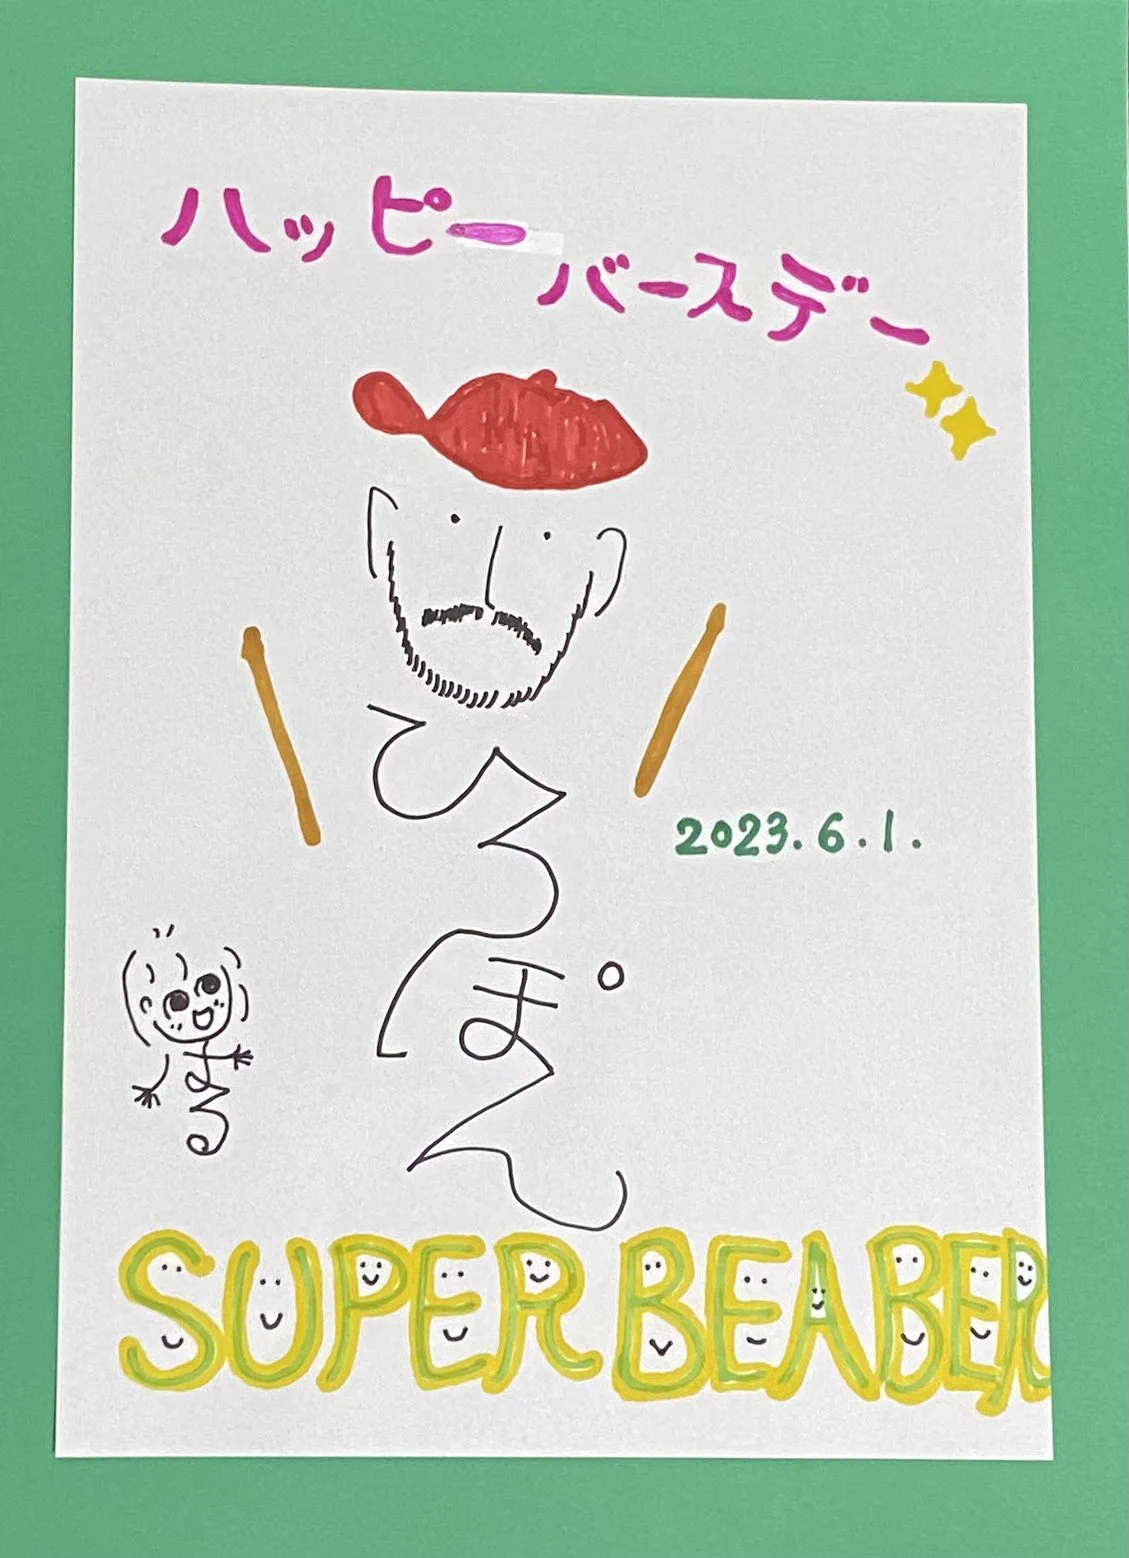 ハッピー
バースデー
ひろぽん
2023.6.1.
まる
SUPER BEABER